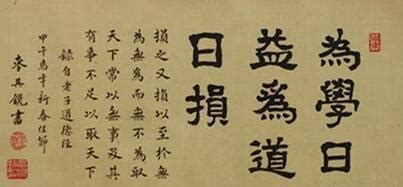 為學日
益爲道
日損
損之又損以至於無
為無為而無不為取
天下常以無事及其
有事不足以取天下
錄自老子道德經
甲午馬年新春佳節
麥其鋭書